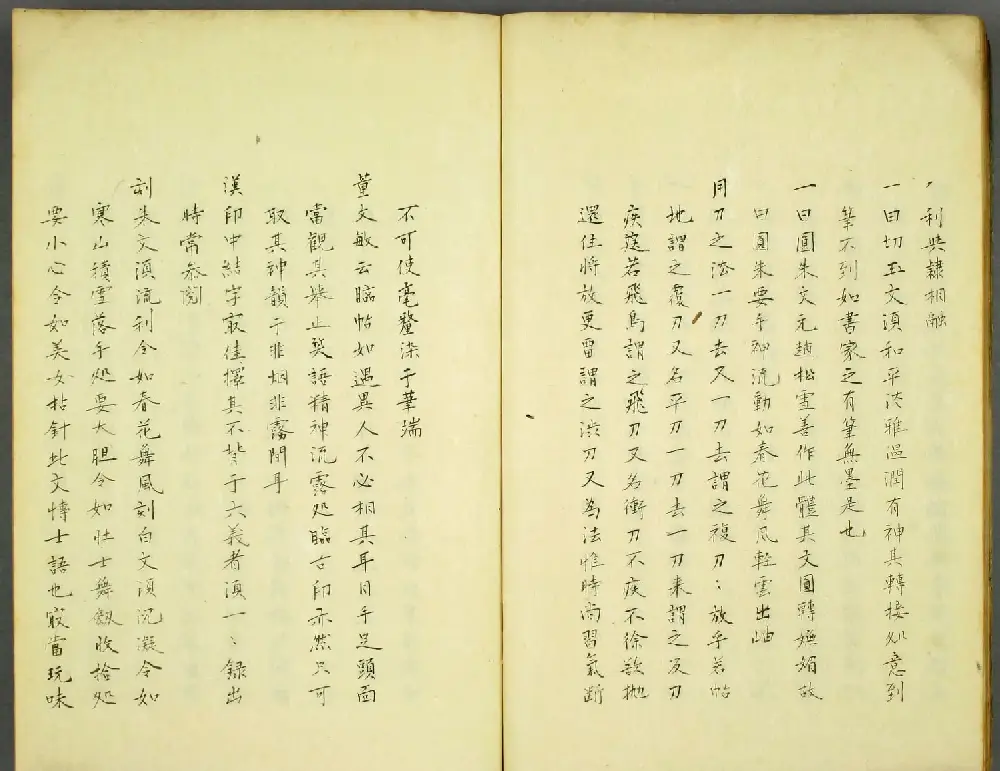 利與隸相融
一曰切玉文須和平淡雅溫潤有神其轉接処意到
筆不到如書家之有筆無墨是也
一曰圓朱文元趙松雪善作此體其文圓轉嫵媚故
曰圓朱要乎神流動如春花舞風輕雲出岫
用刀之法一刀去又一刀去謂之複刀〻放乎若帖
地謂之覆刀又名平刀一刀去一刀来謂之反刀
疾蓗若飛鳥謂之飛刀又名衝刀不疾不徐欲抛
還住將放更留謂之澁刀又為法惟時尚習氣断
不可使毫釐染于筆端
董文敏云臨帖如遇異人不必相其耳目手足頭面
當觀其舉止笑語精神流露処臨古印亦然只可
取其神韻于非烟非霧間耳
漢印中結字㝡佳擇其不背于六義者須一〻錄出
時常叅閲
刻朱文須流利令如春花舞風刻白文須沉凝令如
寒山積雪落手処要大胆令如壯士舞劔收拾処
要小心令如美女拈針此文博士語也㝡當玩味